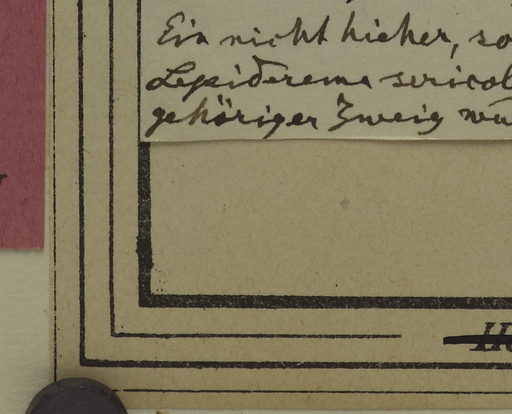 Ein nicht hieher, so
Lepiderema sericol
gehöriger Zweig wu